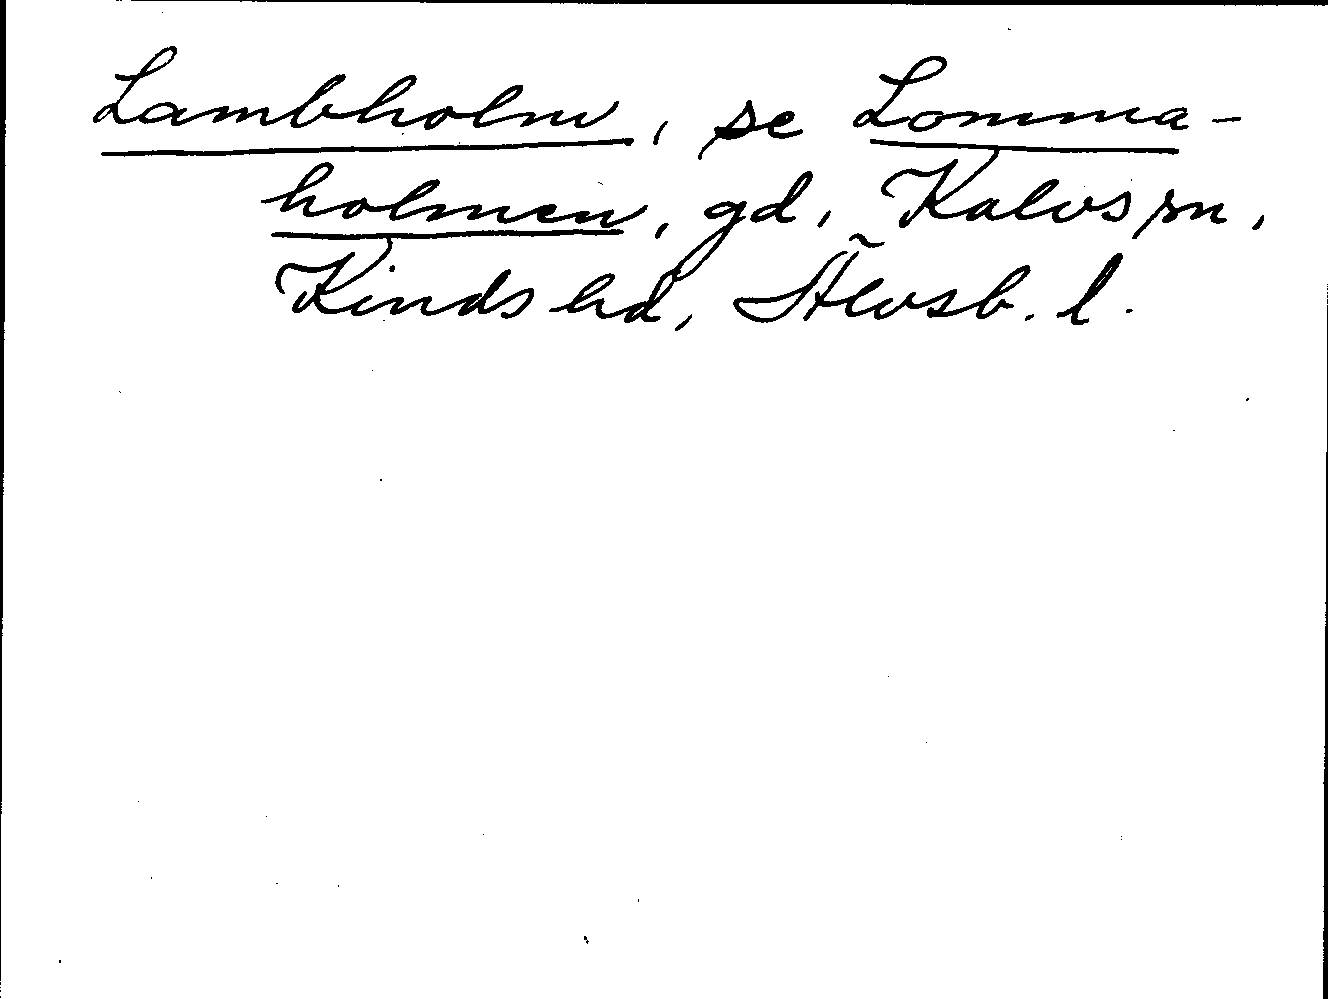 Lambholm, se Lomma-
holmen, gd, Kalvs sn,
Kinds hd, Älvsb. l.